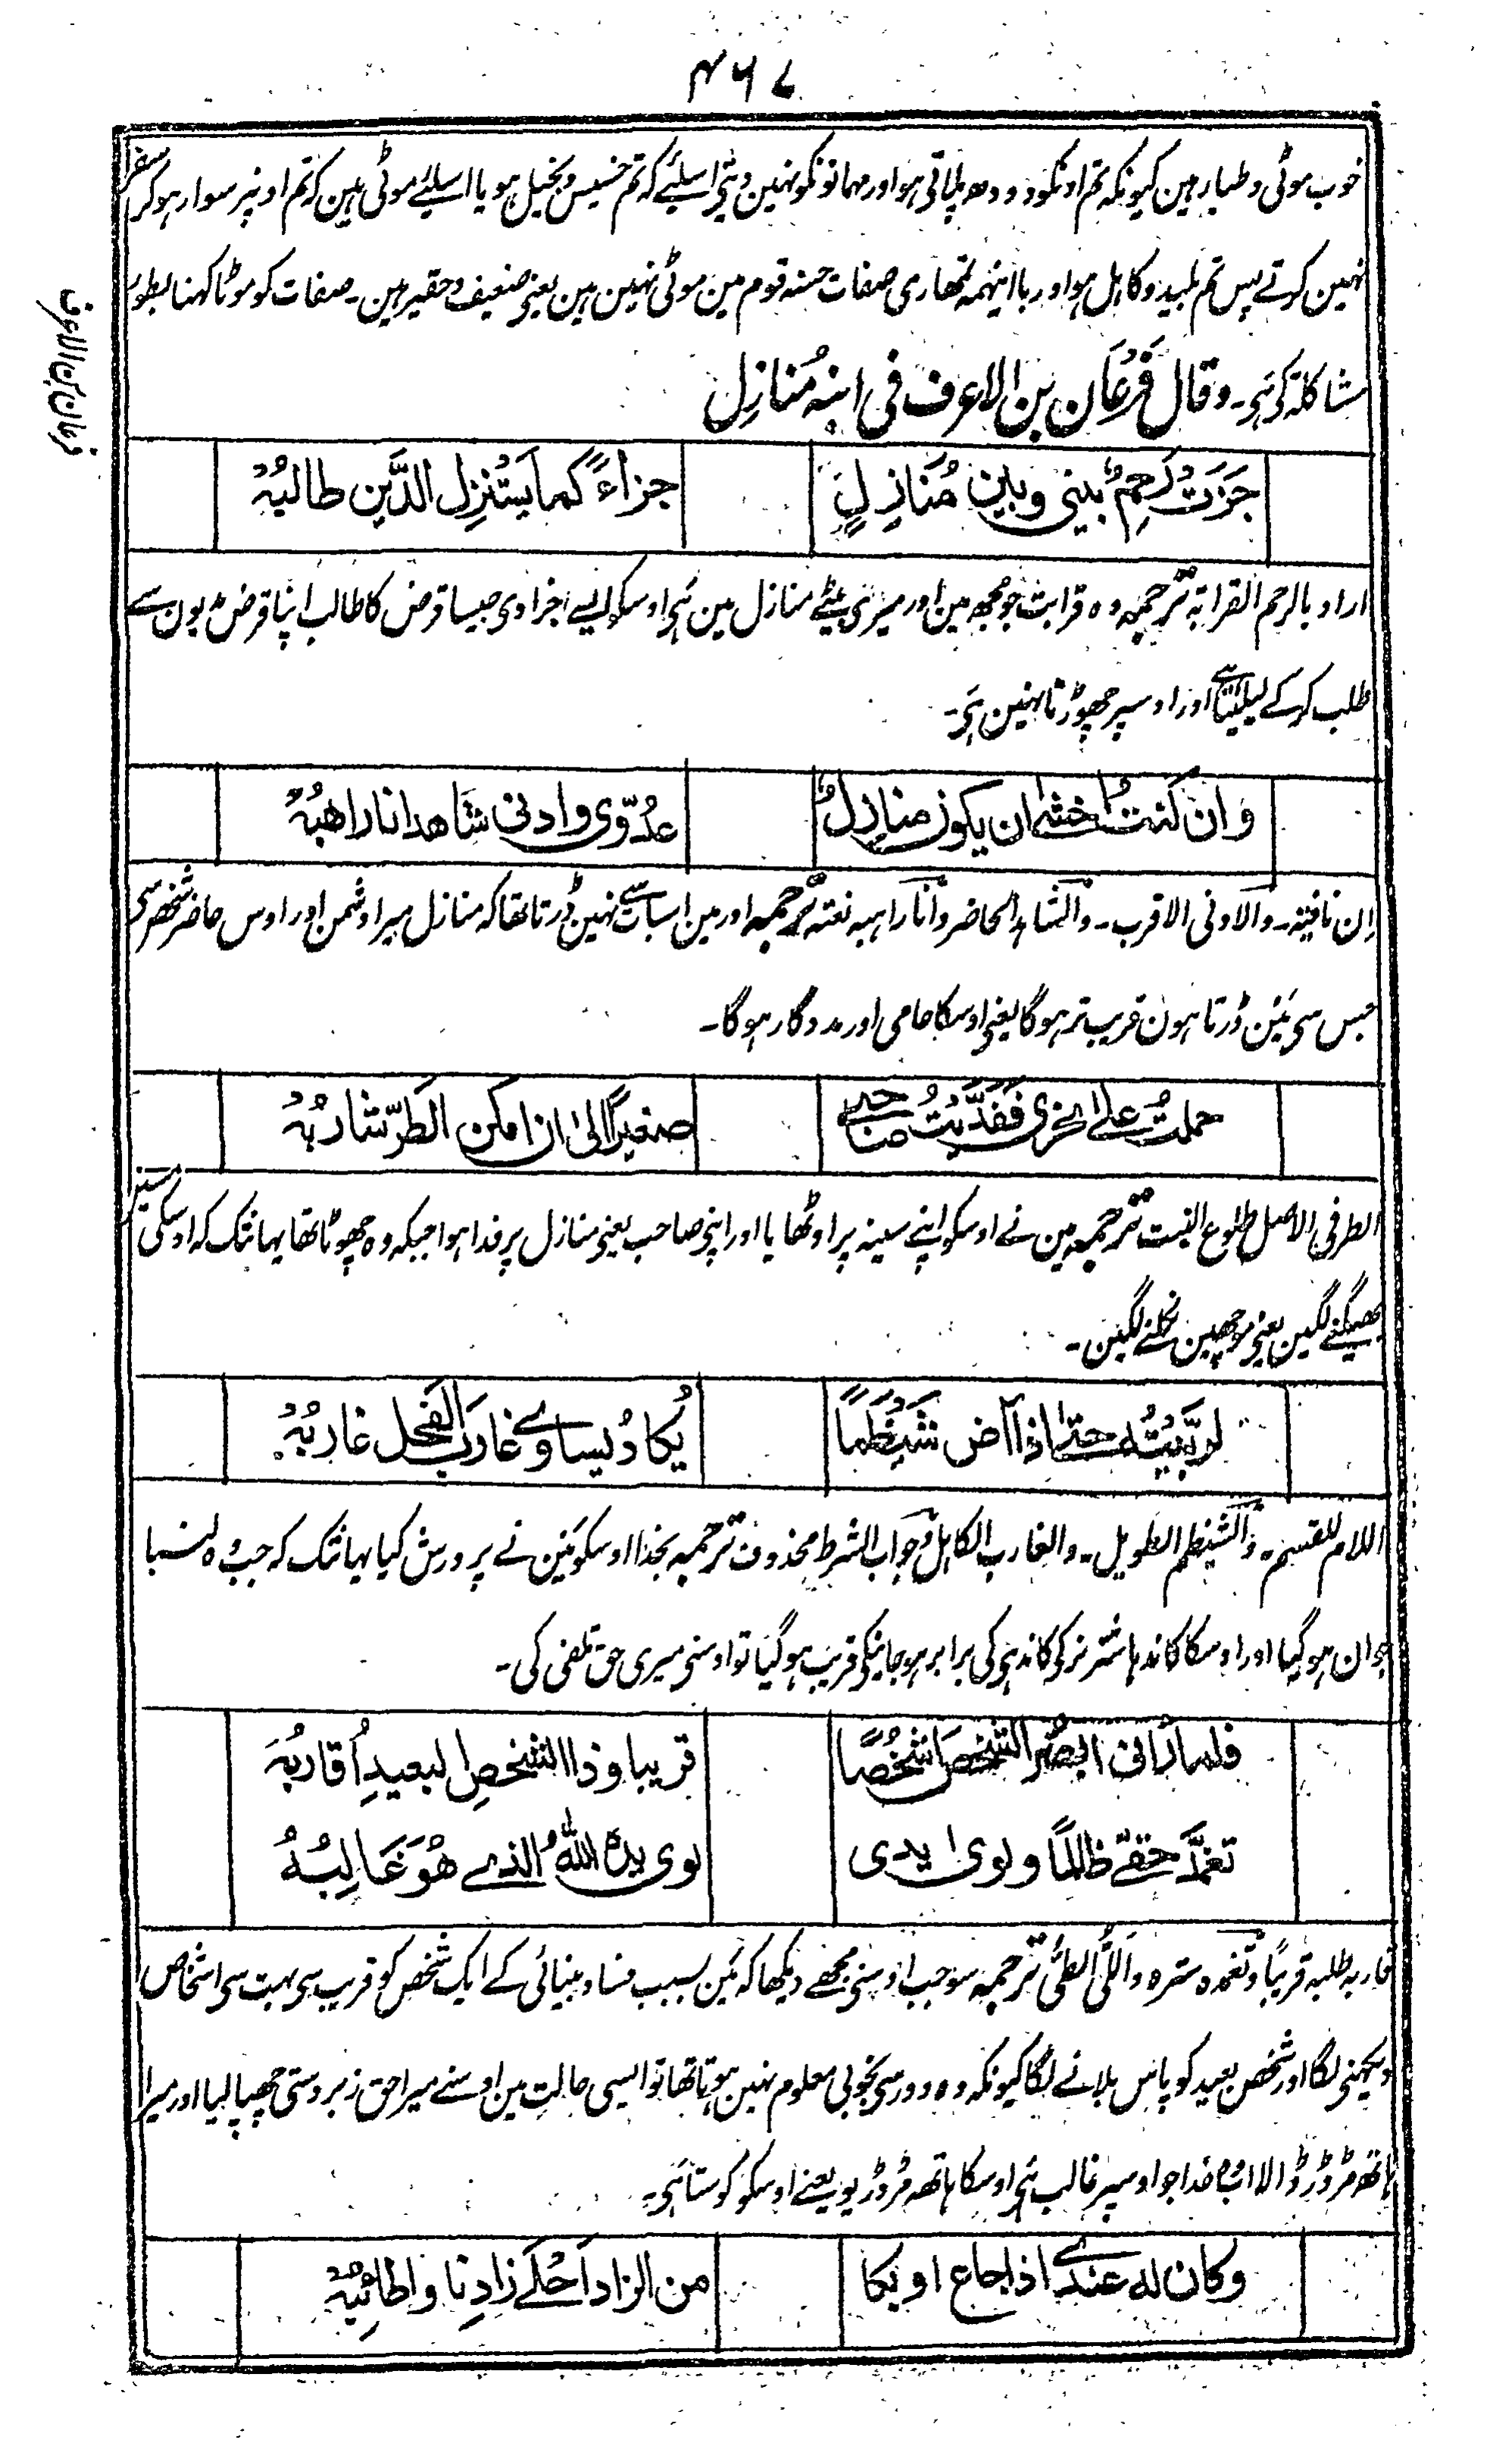 ۴۶۷
خوب موٹی و طیار ہین کیونکہ تم اونکو دودھ پلاتی ہو اور مہمانونکو نہین دیتی اسلئے کہ تم خسیس و بخیل ہو یا اسلیئے موٹی ہین کہ تم اونپر سوار ہوکر سفر
نہین کرتے پس تم بلید و کاہل ہو اور باانیہمہ تمھاری صفات حسنہ قوم مین موٹی نہین ہین یعنی ضعیف و حقیر ہین۔ صفات کو موٹا کہنا بطور
مشاکلۃ کی ہی۔ وقال فَرْعَان بن الاعرف فی ابنہ مُنازِل
فرعان بن الاعرف
جَزَتْ رَحِمٌ بینی وبین مُنَازِلٍ
جزاءً کما یستنزِل الدَّین طالبُہْ
اراد بالرحم القرابۃ ترجمہ وہ قرابت جو مجھ مین اور میری بیٹے منازل مین ہی اوسکو ایسے اجزا دی جیسا قرض کا طالب اپنا قرض مدیون سے
طلب کرکے لیلیتا ہے اور اوسپر چھوڑتا نہین ہی۔
وان کنتُ اخشی ان یکون منازلٌ
عدُوّی وادنی شاھد انا راھبُہْ
اِن نافیۃ۔ والادنی الاقرب۔ والشاہد الحاضر وانا راہبہ نعتہ ترجمہ اور مین اسبات سے نہین ڈرتا تھا کہ منازل میرا دشمن اور اوس حاضر شخص سی
جس سی مین ڈرتا ہون قریب تر ہوگا یعنی اوسکا حامی اور مددگار ہوگا۔
حملتُ علی نحری ففَدَّیتُ صاحبی
صغیرًا الی ان امکن الطَرّ شاربُہْ
الطر فی الاصل طلوع النبت ترجمہ مین نے اوسکو اپنے سینہ پر اوٹھایا اور اپنی صاحب یعنی منازل پر فدا ہوا جبکہ وہ چھوٹا تھا یہانتک کہ اوسکی مسین
بھیگنے لگین یعنی موچھین نکلنے لگین۔
لربَّیْتُہ حتی اذا آض شَیْظَمًا
یُکادُ یساوی غاربَ الفَحل غاربُہْ
اللام للقسم۔ والشیظم الطویل۔ والغارب الکاہل وجواب الشرط محذوف ترجمہ بخدا اوسکو مین نے پرورش کیا یہانتک کہ جب وہ لنبا
جوان ہوگیا اور اوسکا کاندہا شتر نر کی کاندہی کی برابر ہوجانیکی قریب ہوگیا تو اوسنی میری حق تلفی کی۔
فلما رآنی ابصُر الشخصَ اشخُصًا
قریبا وذا الشخصِ البعیدِ اُقاربُہْ
تغمَّدَ حقّی ظالمًا ولوی یدی
لوی یدہ اللہُ الذی ھُوَ غَالِبُہُ
قاربہ طلبہ قریبًا وتغمدہ سترہ واللَّیُّ الطیُّ ترجمہ سو جب اوسنی مجھے دیکھا کہ مین بسبب فساد بینائی کے ایک شخص کو قریب سی بہت سی اشخاص
دیکہنی لگا اور شخص بعید کو پاس بلانے لگا کیونکہ وہ دور سی بخوبی معلوم نہین ہوتا تھا تو ایسی حالت مین اوسنے میرا حق زبردستی چھپالیا اور میرا
ہاتھ مڑوڑ ڈالا اب وہ خدا جو اوسپر غالب ہی اوسکا ہاتھ مڑوڑیو یعنے اوسکو کوستا ہی۔
وکان لہ عندی اذا جاع او بکا
من الزاد اَحْلی زادِنا واطائبُہْ